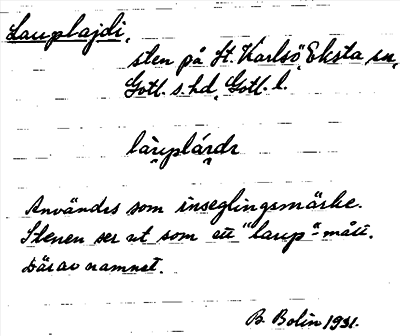 Lauplajdi,
sten på St. Karlsö, Eksta sn,
Gotl. s. hd, Gotl. l.
Användes som inseglingsmärke.
Stenen ser ut som ett "laup"-mått.
Därav namnet.
B. Bolin 1931.